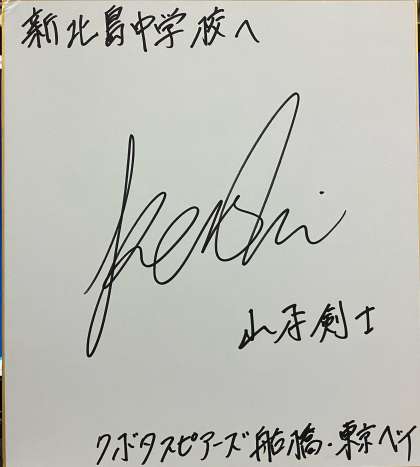 新北島中学校へ
Kenshi
山本剣士
クボタスピアーズ船橋・東京ベイ